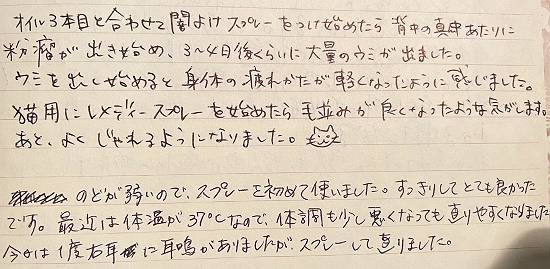 オイル3本目と合わせて闇よけスプレーをつけ始めたら背中の真中あたりに
粉瘤ができ始め、3〜4日後くらいに大量のウミが出ました。
ウミを出し始めると身体の疲れかたが軽くなったように感じました。
猫用にレメディースプレーを始めたら毛並みが良くなったような気がします。
あと、よくじゃれるようになりました。
のどが弱いので、スプレーを初めて使いました。すっきりしてとても良かった
です。最近は体温が37℃なので、体調も少し悪くなっても直りやすくなりました
今日は1度右耳に耳鳴がありましたが、スプレーして直りました。